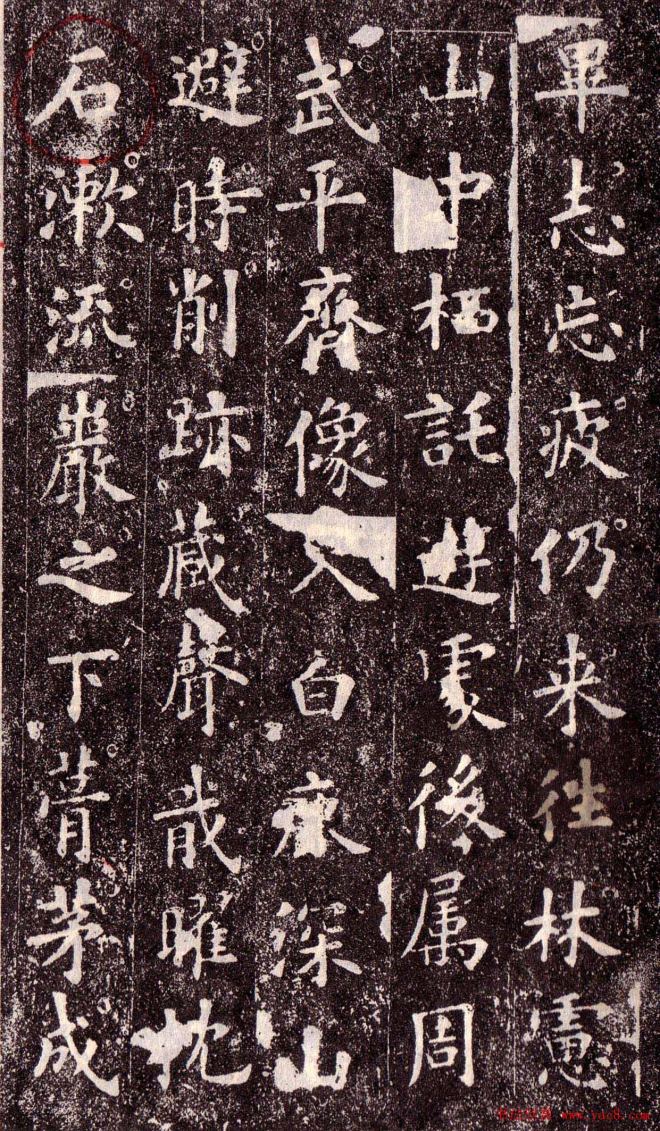 畢志忘疲仍来徃林慮
山中栖託遊處後属周
武平齊像入白鹿深山
避時削跡藏聲戢曜枕
石漱流巖之下葺茅成
www.yac8.com